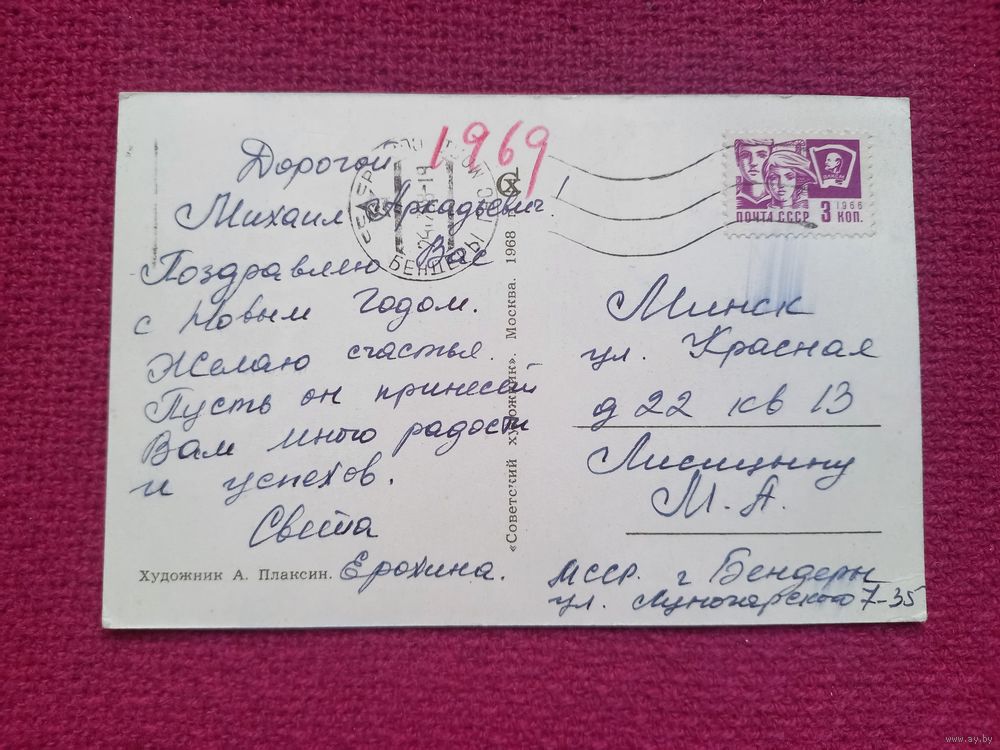 1969
Дорогой
Михаил Аркадьевич!
Поздравляю Вас
с Новым Годом.
Желаю счастья.
Пусть он принесёт
Вам много радости
и успехов.
Света
Ерохина.
Художник А. Плаксин.
«Советский художник». Москва. 1968
БЕНДЕРЫ
ВЛКСМ
1966
ПОЧТА СССР 3 КОП.
Минск
ул. Красная
д 22 кв 13
Лисицыну
М. А.
МССР. г Бендеры
ул. Луночарского 7-35
www.ay.by